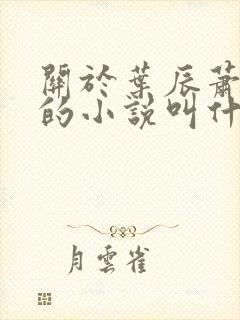 關於葉辰蕭
的小說叫什
月雲雀